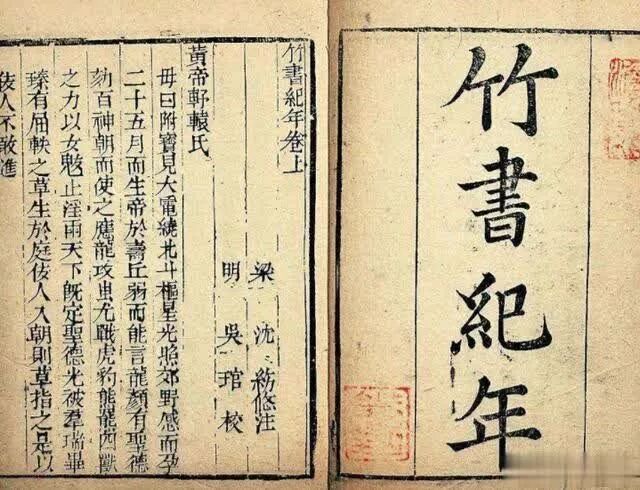 竹書紀年
竹書紀年卷上
梁 沈 約 附注
明 吳 琯 校
黃帝軒轅氏
母曰附寶見大電繞北斗樞星光照郊野感而孕
二十五月而生帝於壽丘弱而能言龍顏有聖德
劾百神朝而使之應龍攻蚩尤戰虎豹熊羆四獸
之力以女魃止淫雨天下既定聖德光被羣瑞畢
臻有屈軼之草生於庭佞人入朝則草指之是以
佞人不敢進